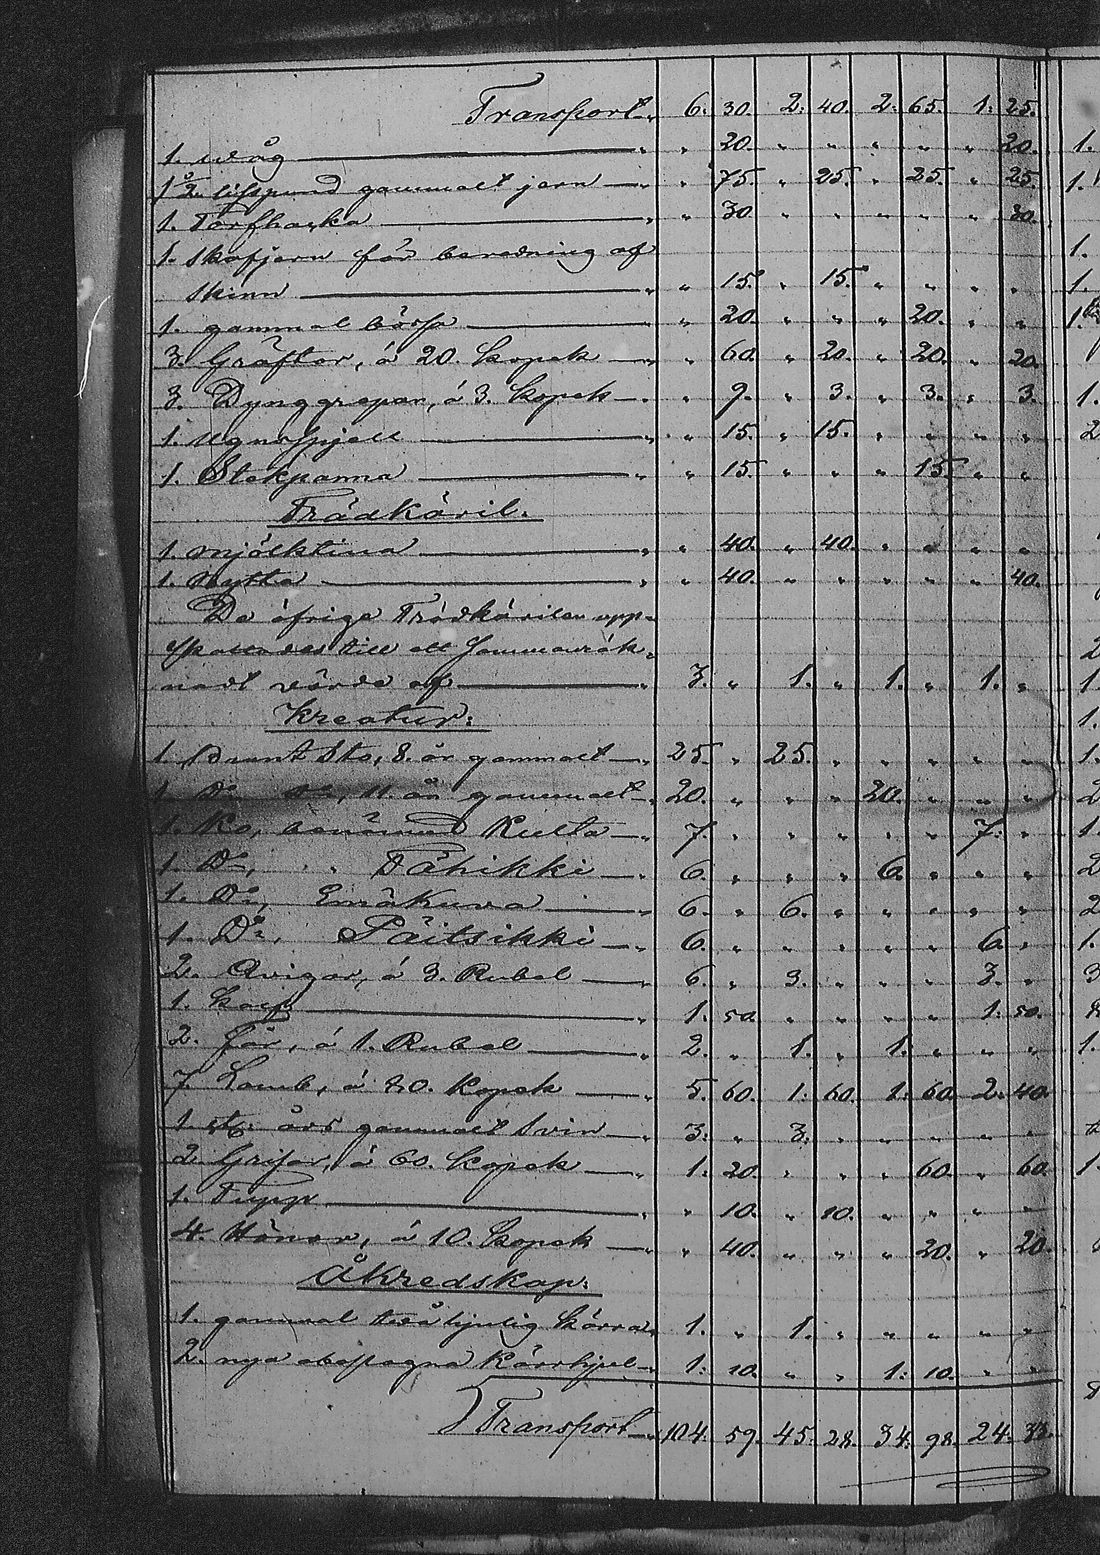 Transport " 6: 30. 2: 40. 2: 65. 1: 25.
1. wåg " " 20. " " " " " 20.
1½ lispund gammalt jern " " 75. " 25. " 25. " 25.
1. Torfhacka " " 30 " " " " " 30.
1. skafjern för beredning af
skinn " " 15. " 15. " " " "
1. gammal börsa " " 20. " " " 20. " "
3. Gräftor, á 20. kopek " " 60. " 20. " 20. " 20.
3. Dynggrepar, á 3. kopek " " 9. " 3. " 3. " 3.
1. ugnsspjell " " 15. " 15. " " " "
1. Stekpanna " " 15. " " " 15. " "
Trädkäril.
1 mjölktina " " 40. " 40. " " " "
1. Bytta " " 40. " " " " " 40.
De öfrige Trädkärilen upp=
skattades till ett sammanräk=
nadt värde af " 3. " 1. " 1. " 1. "
Kreatur:
1 Brunt Sto, 8. år gammalt " 25. " 25. " " " " "
1 Do Do, 11. år gammalt " 20. " " " 20. " " "
1. Ko, benämnd Kulta " 7. " " " " " 7. "
1. Do, " Tähikki " 6. " " " 6. " " "
1. Do, Emäkuva " 6. " 6. " " " " "
1. Do, Päitsikki " 6. " " " " " 6. "
2. Qvigor, á 3. Rubel " 6. " 3. " " " 3. "
1. kalf " 1. 50. " " " " 1. 50.
2. får, á 1. Rubel " 2. " 1. " 1. " " "
7. Lamb, á 80. kopek " 5. 60. 1: 60. 1: 60. 2: 40.
1. års gammalt Svin " 3: " 3: " " " " "
2 Grisar, á 60. kopek " 1: 20. " " " 60. " 60.
1. Tupp " " 10. " 10. " " " "
4. Hönor, á 10. kopek " " 40. " " " 20. " 20.
Åkredskap:
1. gammal tvåhjulig kärra " 1. " 1. " " " " "
2. nya obeslagna Kärrhjul " 1: 10. " " 1: 10. " "
Transport " 104: 59. 45: 28. 34: 98. 24: 33.